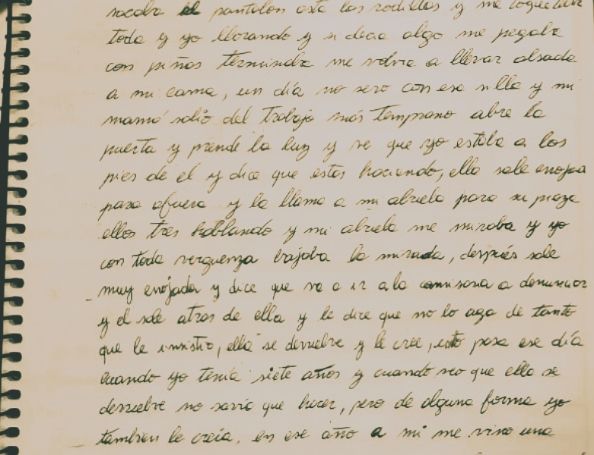 sacaba el pantalon asta las rodillas y me
toda y yo llorando y si decia algo me pegaba
con piñas terminaba me volvia a llevar alsada
a mi cama, un dia no sero con esa silla y mi
mamá salio del trabajo más temprano abre la
puerta y prende la luz y ve que yo estaba a los
pies de el y dice que estas haciendo, ella sale enojada
para afuera y la llama a mi abuela para su pieza
ellos tres hablando y mi abuela me miraba y yo
con toda verguenza bajaba la mirada, después sale
muy enojada y dice que va a ir a la comisaria a denunciar
y el sale atras de ella y le dice que no lo aga de tanto
que le insistio, ella se devuelve y le cree, esto pasa ese día
cuando yo tenía siete años y cuando veo que ella se
devuelve no savia que hacer, pero de alguna forma yo
tambien le creia, en ese año a mi me vino una